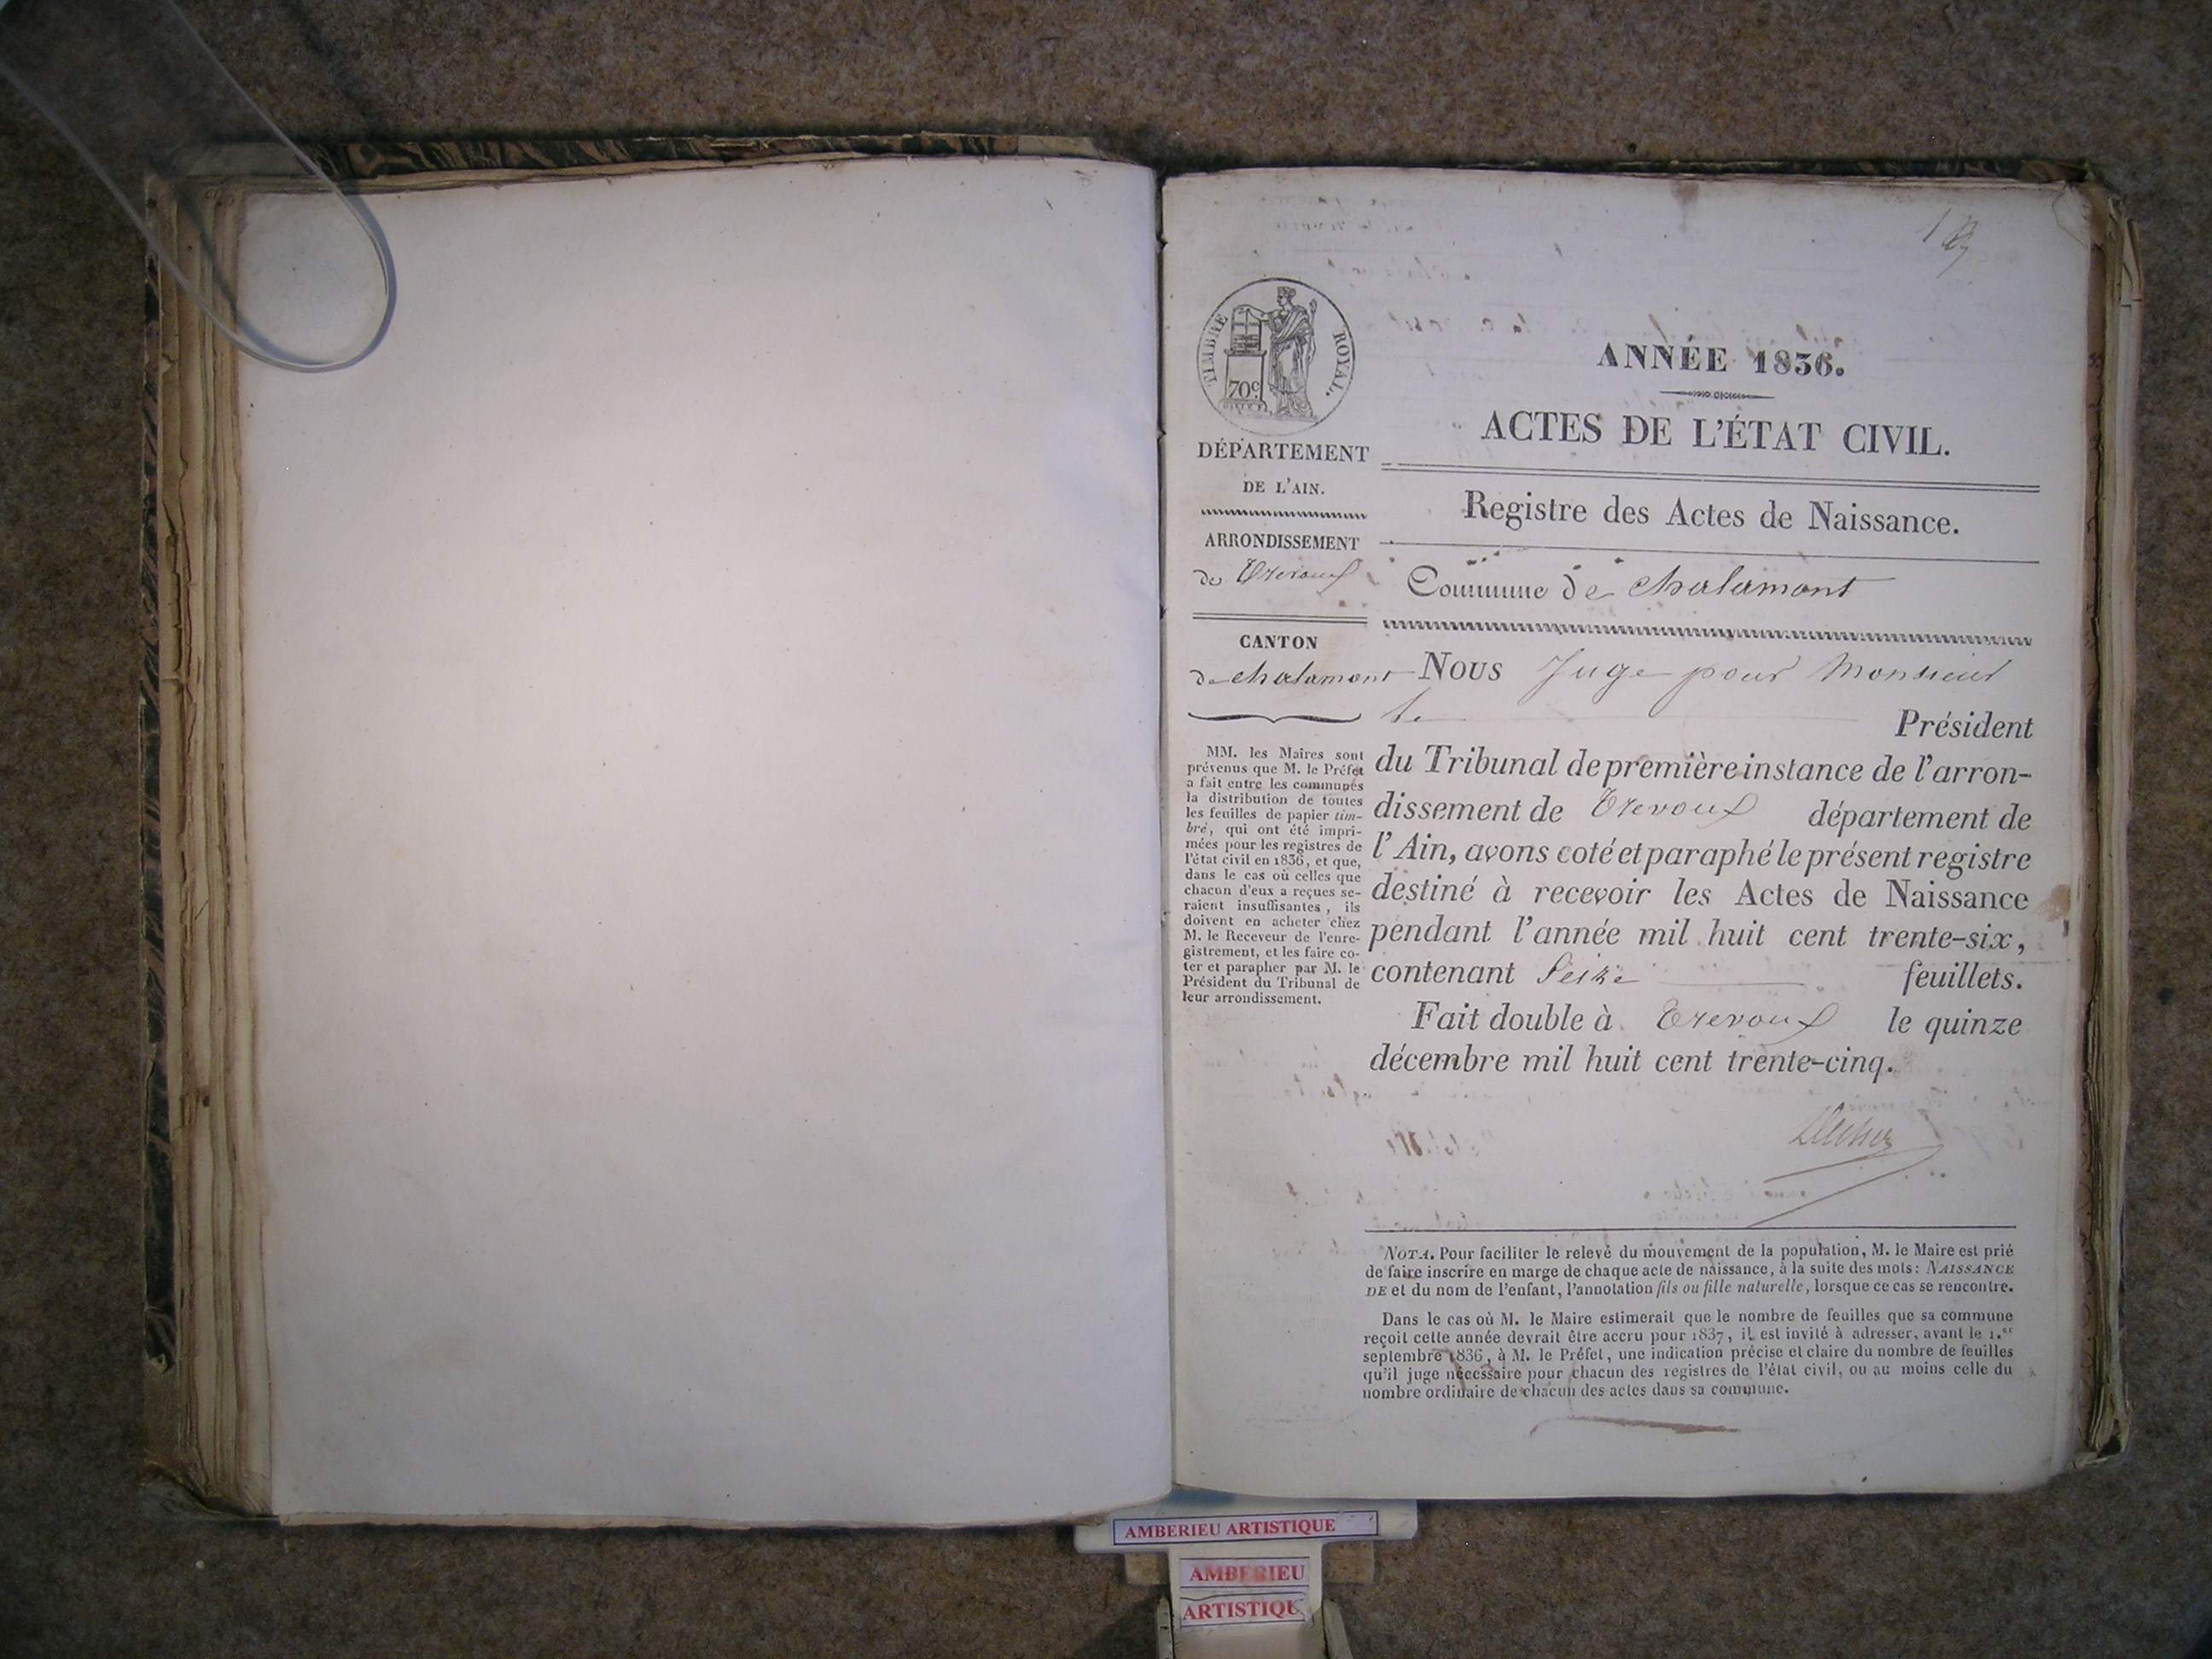 TIMBRE ROYAL.
70c
ANNÉE 1836.
ACTES DE L'ÉTAT CIVIL.
DÉPARTEMENT
DE L'AIN.
ARRONDISSEMENT
de Trevoux
CANTON
de chalamont
MM. les Maires sont
prévenus que M. le Préfet
a fait entre les communes
la distribution de toutes
les feuilles de papier tim-
bré, qui ont été impri-
mées pour les registres de
l'état civil en 1836, et que,
dans le cas où celles que
chacun d'eux a reçues se-
raient insuffisantes, ils
doivent en acheter chez
M. le Receveur de l'enre-
gistrement, et les faire co-
ter et parapher par M. le
Président du Tribunal de
leur arrondissement.
Registre des Actes de Naissance.
Commune de chalamont
Nous Juge pour Monsieur
le Président
du Tribunal de première instance de l'arron-
dissement de Trevoux département de
l'Ain, avons coté et paraphé le présent registre
destiné à recevoir les Actes de Naissance
pendant l'année mil huit cent trente-six,
contenant Seize feuillets.
Fait double à Trevoux le quinze
décembre mil huit cent trente-cinq.
NOTA. Pour faciliter le relevé du mouvement de la population, M. le Maire est prié
de faire inscrire en marge de chaque acte de naissance, à la suite des mots: NAISSANCE
DE et du nom de l'enfant, l'annotation fils ou fille naturelle, lorsque ce cas se rencontre.
Dans le cas où M. le Maire estimerait que le nombre de feuilles que sa commune
reçoit cette année devrait être accru pour 1837, il est invité à adresser, avant le 1.er
septembre 1836, à M. le Préfet, une indication précise et claire du nombre de feuilles
qu'il juge nécessaire pour chacun des registres de l'état civil, ou au moins celle du
nombre ordinaire de chacun des actes dans sa commune.
AMBERIEU ARTISTIQUE
AMBERIEU
ARTISTIQUE